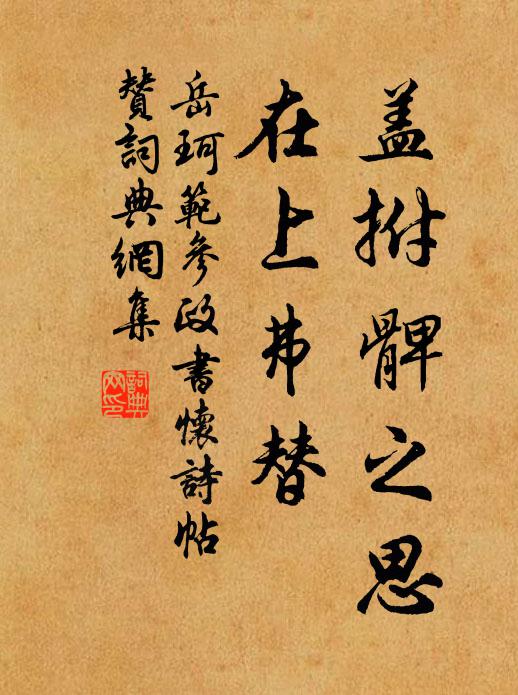 盖拊髀之思
在上弗替
岳珂範參政書懷詩帖
贊詞典網集
詞典網印